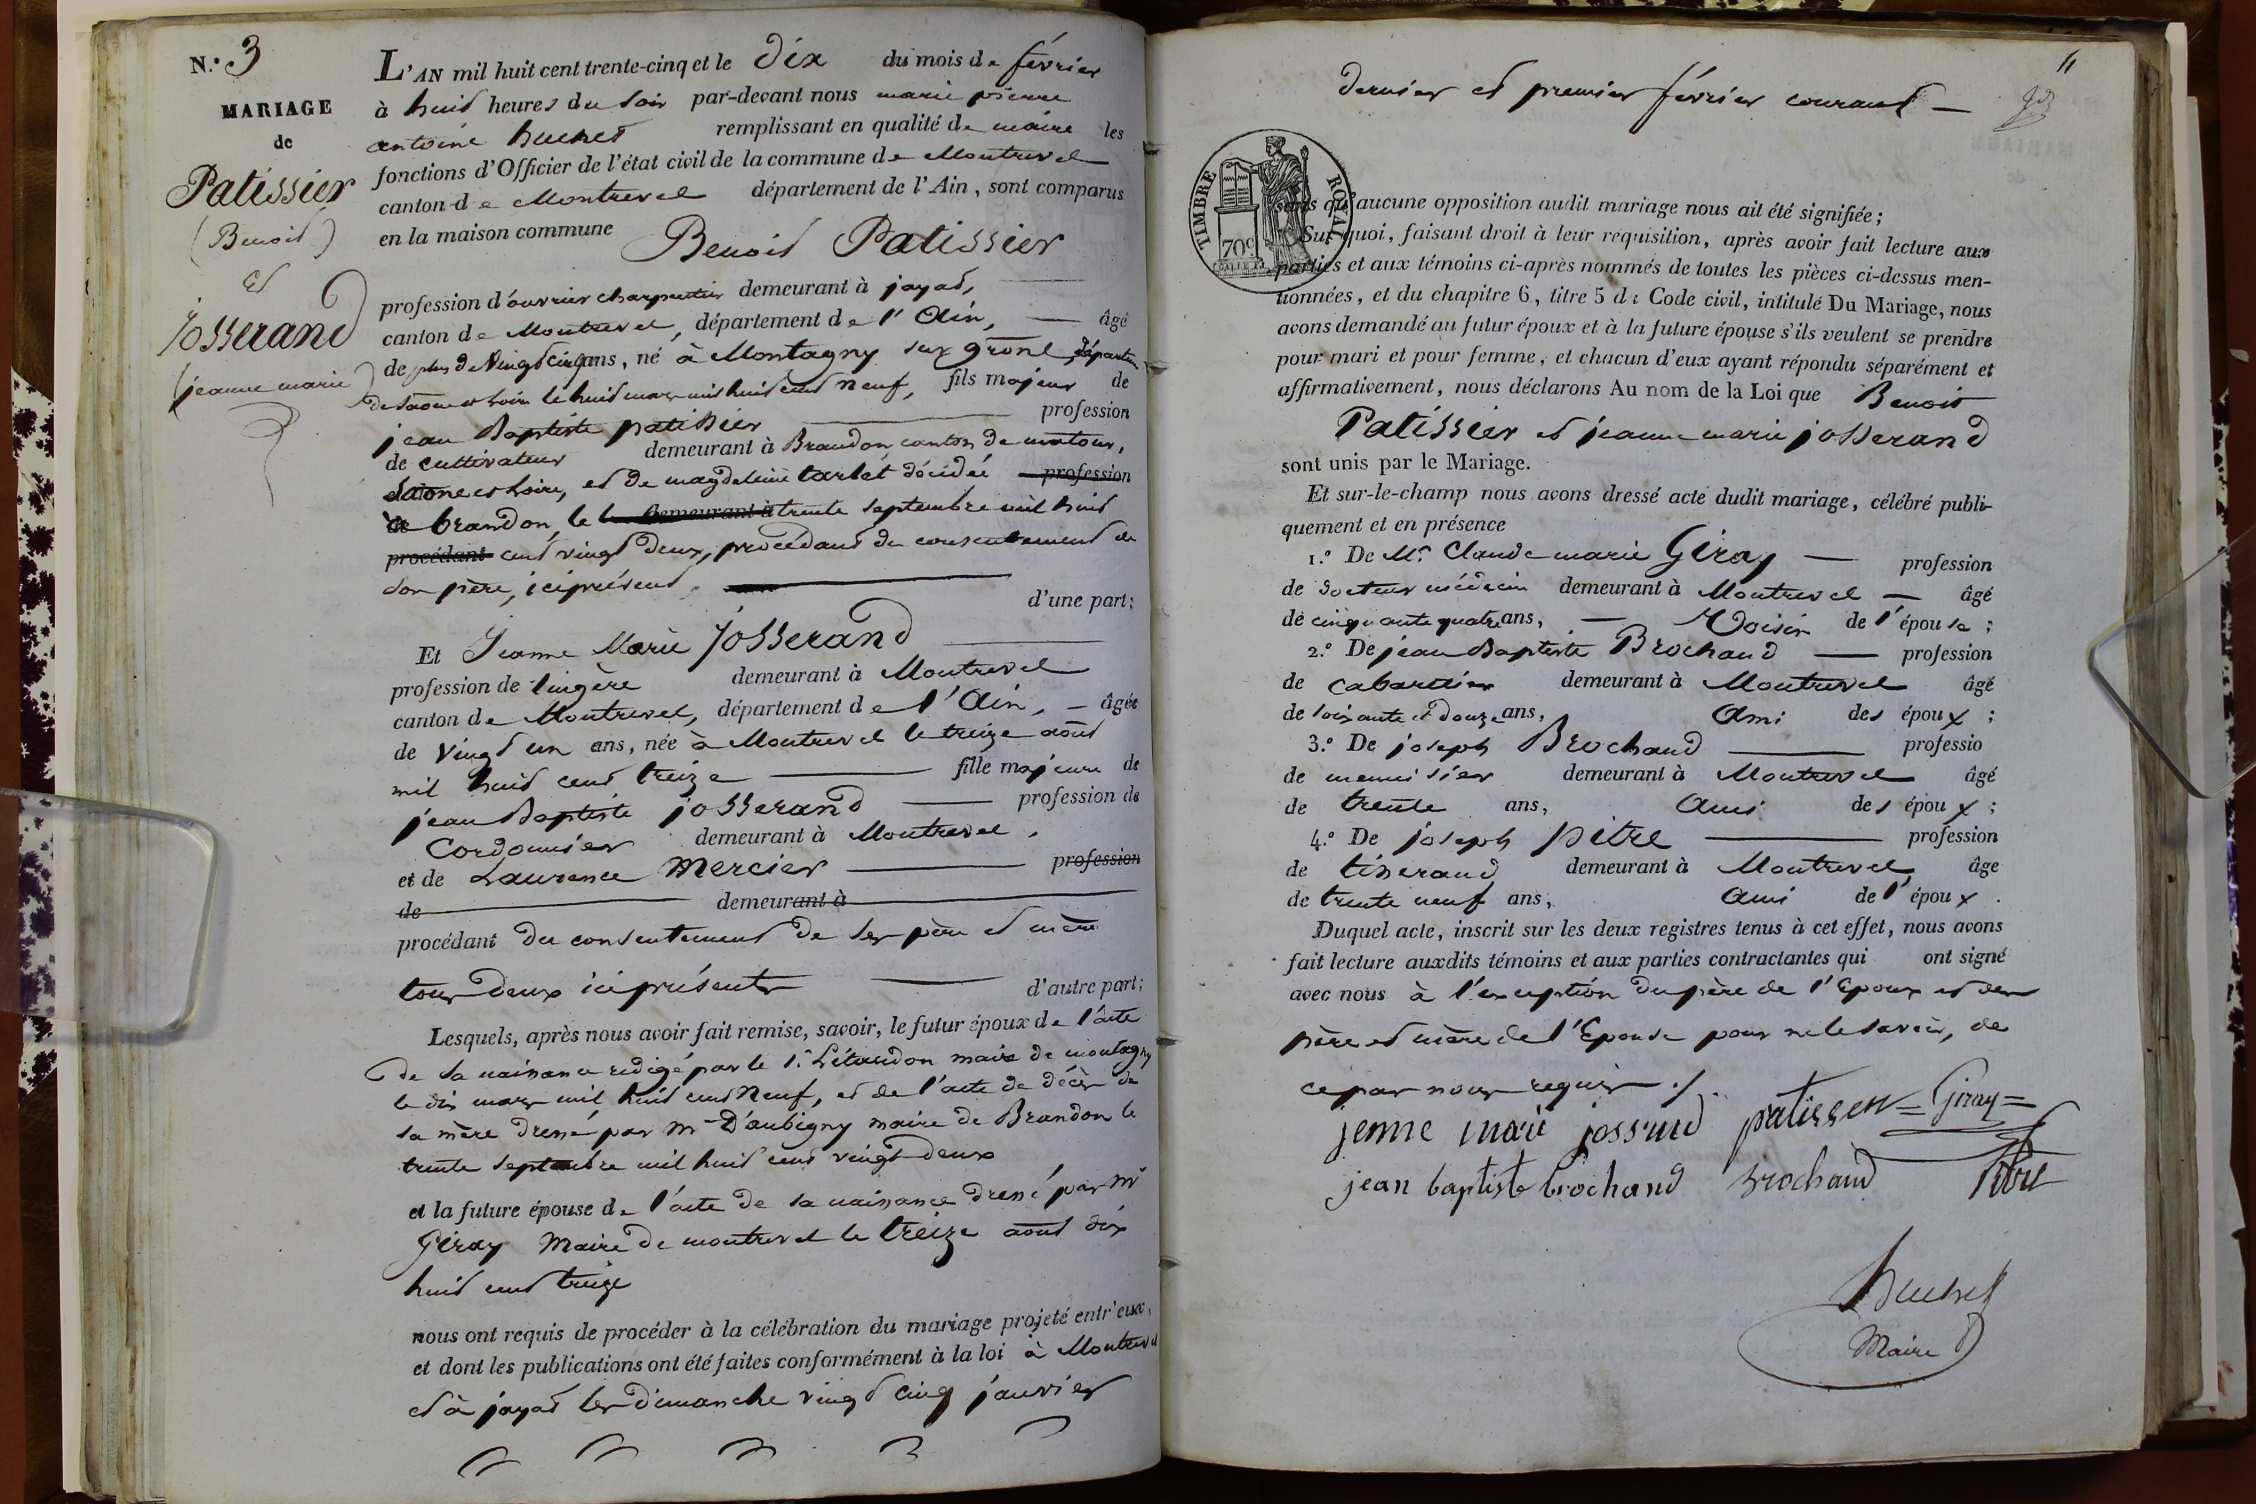 N.° 3
MARIAGE
de
Patissier
(Benoit)
et
Josserand
(jeanne marie)
L'AN mil huit cent trente-cinq et le dix du mois de février
à huit heures du soir par-devant nous marie pierre
antoine huchet remplissant en qualité de maire les
fonctions d'Officier de l'état civil de la commune de Montrevel
canton de Montrevel département de l'Ain, sont comparus
en la maison commune Benoit Patissier
profession d'ouvrier charpentier demeurant à jayat,
canton de Montrevel, département de l'Ain, âgé
de plus de Vingt cinq ans, né à Montagny sur grone, département
de saone et loire le huit mars mil huit cent neuf, fils majeur de
jean Baptiste patissier profession
de cultivateur demeurant à Brandon canton de matour,
saone et loire, et de magdeleine tarlet décédée profession
à brandon, le demeurant à trente septembre mil huit
procédant cent vingt deux, procédant du consentement de
son père, ici présent, d'une part;
Et Jeanne Marie Josserand
profession de lingère demeurant à Montrevel
canton de Montrevel, département de l'Ain, âgée
de Vingt un ans, née à Montrevel le treize août
mil huit cent treize fille majeure de
jean Baptiste josserand profession de
Cordonnier demeurant à Montrevel,
et de Laurence Mercier profession
de demeurant à
procédant du consentement de ses père et mère
tous deux ici présents d'autre part;
Lesquels, après nous avoir fait remise, savoir, le futur époux de l'acte
de sa naissance rédigé par le s.r Létaudon maire de montagny
le dix mars mil huit cent neuf, et de l'acte de décès de
sa mère dressé par mr D'aubigny maire de Brandon le
trente septembre mil huit cent vingt deux
et la future épouse de l'acte de sa naissance dressé par Mr
Giray Maire de montrevel le treize août dix
huit cent treize
nous ont requis de procéder à la célébration du mariage projeté entr'eux,
et dont les publications ont été faites conformément à la loi à Montrevel
et à jayat les dimanche vingt cinq janvier
11
dernier et premier février courant
TIMBRE ROYAL
70c
sans qu'aucune opposition audit mariage nous ait été signifiée;
Sur quoi, faisant droit à leur réquisition, après avoir fait lecture aux
parties et aux témoins ci-après nommés de toutes les pièces ci-dessus men-
tionnées, et du chapitre 6, titre 5 du Code civil, intitulé Du Mariage, nous
avons demandé au futur époux et à la future épouse s'ils veulent se prendre
pour mari et pour femme, et chacun d'eux ayant répondu séparément et
affirmativement, nous déclarons Au nom de la Loi que Benoit
Patissier et jeanne marie josserand
sont unis par le Mariage.
Et sur-le-champ nous avons dressé acte dudit mariage, célébré publi-
quement et en présence
1.° De Mr. Claude marie Giray profession
de docteur médecin demeurant à Montrevel âgé
de cinquante quatre ans, Voisin de l'épouse;
2.° De jean Baptiste Brochand profession
de cabaretier demeurant à Montrevel âgé
de soixante et douze ans, Ami des époux;
3.° De joseph Brochand professio
de menuisier demeurant à Montrevel âgé
de trente ans, Ami des époux;
4.° De joseph pitre profession
de tisserand demeurant à Montrevel, âge
de trente neuf ans, Ami de l'époux.
Duquel acte, inscrit sur les deux registres tenus à cet effet, nous avons
fait lecture auxdits témoins et aux parties contractantes qui ont signé
avec nous à l'exception du père de l'Epoux et des
père et mère de l'Epouse pour ne le savoir, de
ce par nous requis ./.
jenne marie josserand patisser Giray
jean baptiste brochand Brochand Pitre
Huchet
Maire